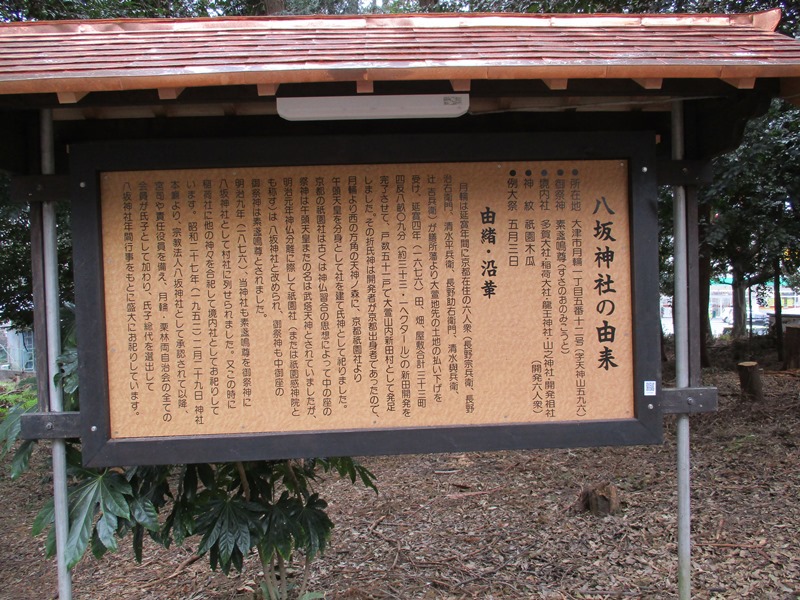 八坂神社の由来
●所在地 大津市月輪一丁目五番十二号(字天神山五九六)
●御祭神 素盞鳴尊(すさのおのみこと)
●境内社 多賀大社・稲荷大社・龍王神社・山之神社・開発祖社
(開発六人衆)
●神 紋 祇園木瓜
●例大祭 五月三日
由緒・沿革
月輪は延宝年間に京都在住の六人衆(長野宗兵衛、長野
治右衛門、清水平兵衛、長野助右衛門、清水與兵衛、
辻 吉兵衛)が膳所藩より大萱地先の土地の払い下げを
受け、延宝四年(一六七六)田、畑、屋敷合計三十三町
四反八畝〇九分(約三十三・一ヘクタール)の新田開発を
完了させて、戸数五十一戸で大萱山内新田村として発足
しました。その折氏神は開発者が京都出身者であったので、
月輪より西の方角の天神ノ森に、京都祇園社より
牛頭天皇を分身として社を建て氏神として祀りました。
京都の祇園社は古くは神仏習合の思想によって中の座の
祭神は牛頭天皇またの名は武塔天神とされていましたが、
明治元年神仏分離に際して祇園社(または祇園感神院と
も称す)は八坂神社と改められ、御祭神も中御座の
御祭神は素盞鳴尊とされました。
明治九年(一八七六)、当神社も素盞鳴尊を御祭神に
八坂神社として村社に列せられました。又この時に
稲荷社に他の神々を合祀して境内社としてお祀りして
います。昭和二十七年(一九五二)二月二十九日 神社
本廳より、宗教法人八坂神社として承認されて以降、
宮司や責任役員を備え、月輪、栗林両自治会の全ての
会員が氏子として加わり、氏子総代を選出して
八坂神社年間行事をもとに盛大にお祀りしています。